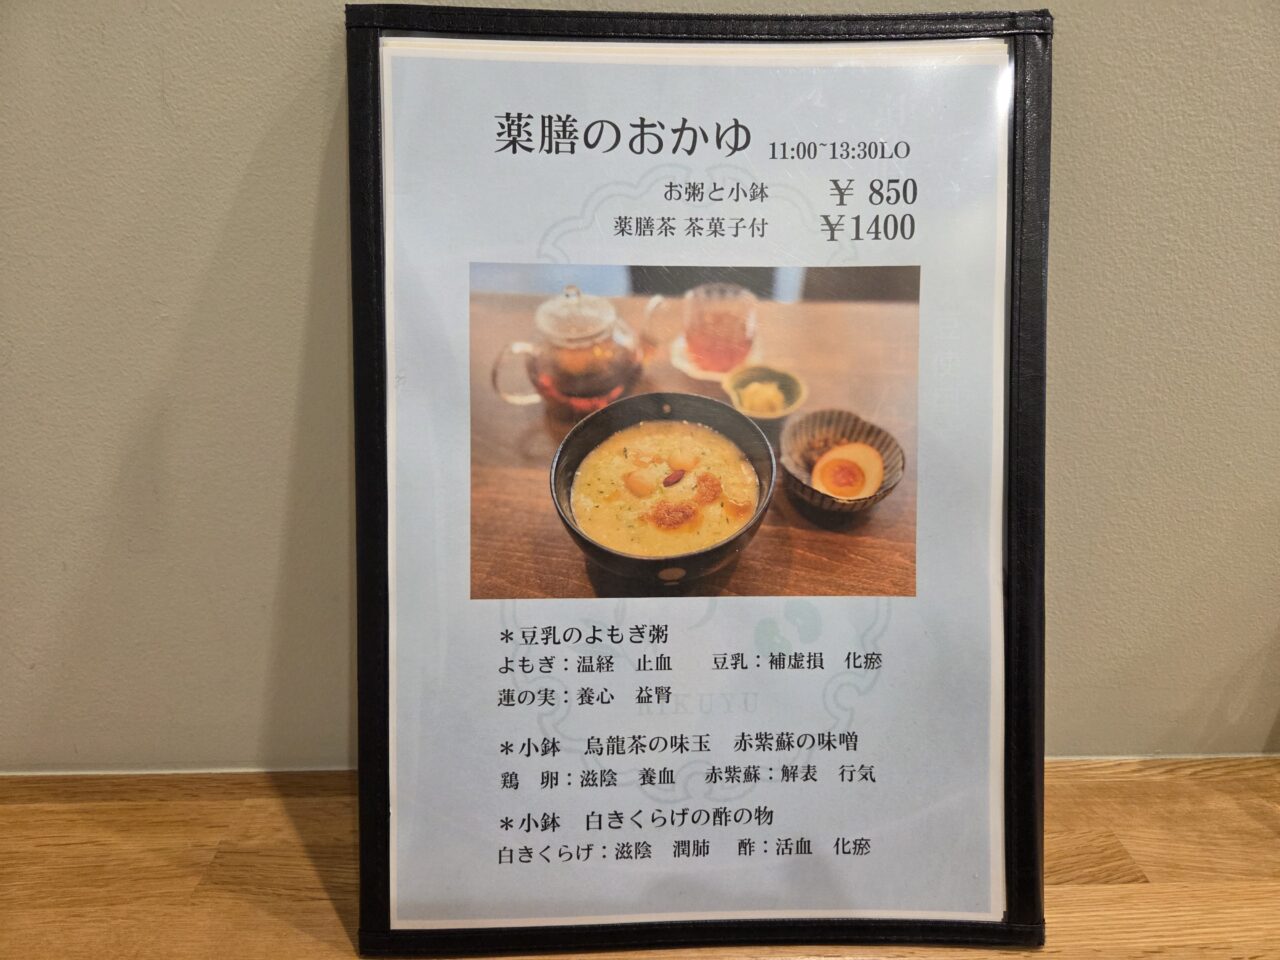 薬膳のおかゆ 11:00~13:30LO
お粥と小鉢 ¥ 850
薬膳茶 茶菓子付 ¥1400
＊豆乳のよもぎ粥
よもぎ：温経　止血　　豆乳：補虚損　化瘀
蓮の実：養心　益腎
RIKUYU
＊小鉢　烏龍茶の味玉　赤紫蘇の味噌
鶏　卵：滋陰　養血　赤紫蘇：解表　行気
＊小鉢　白きくらげの酢の物
白きくらげ：滋陰　潤肺　酢：活血　化瘀